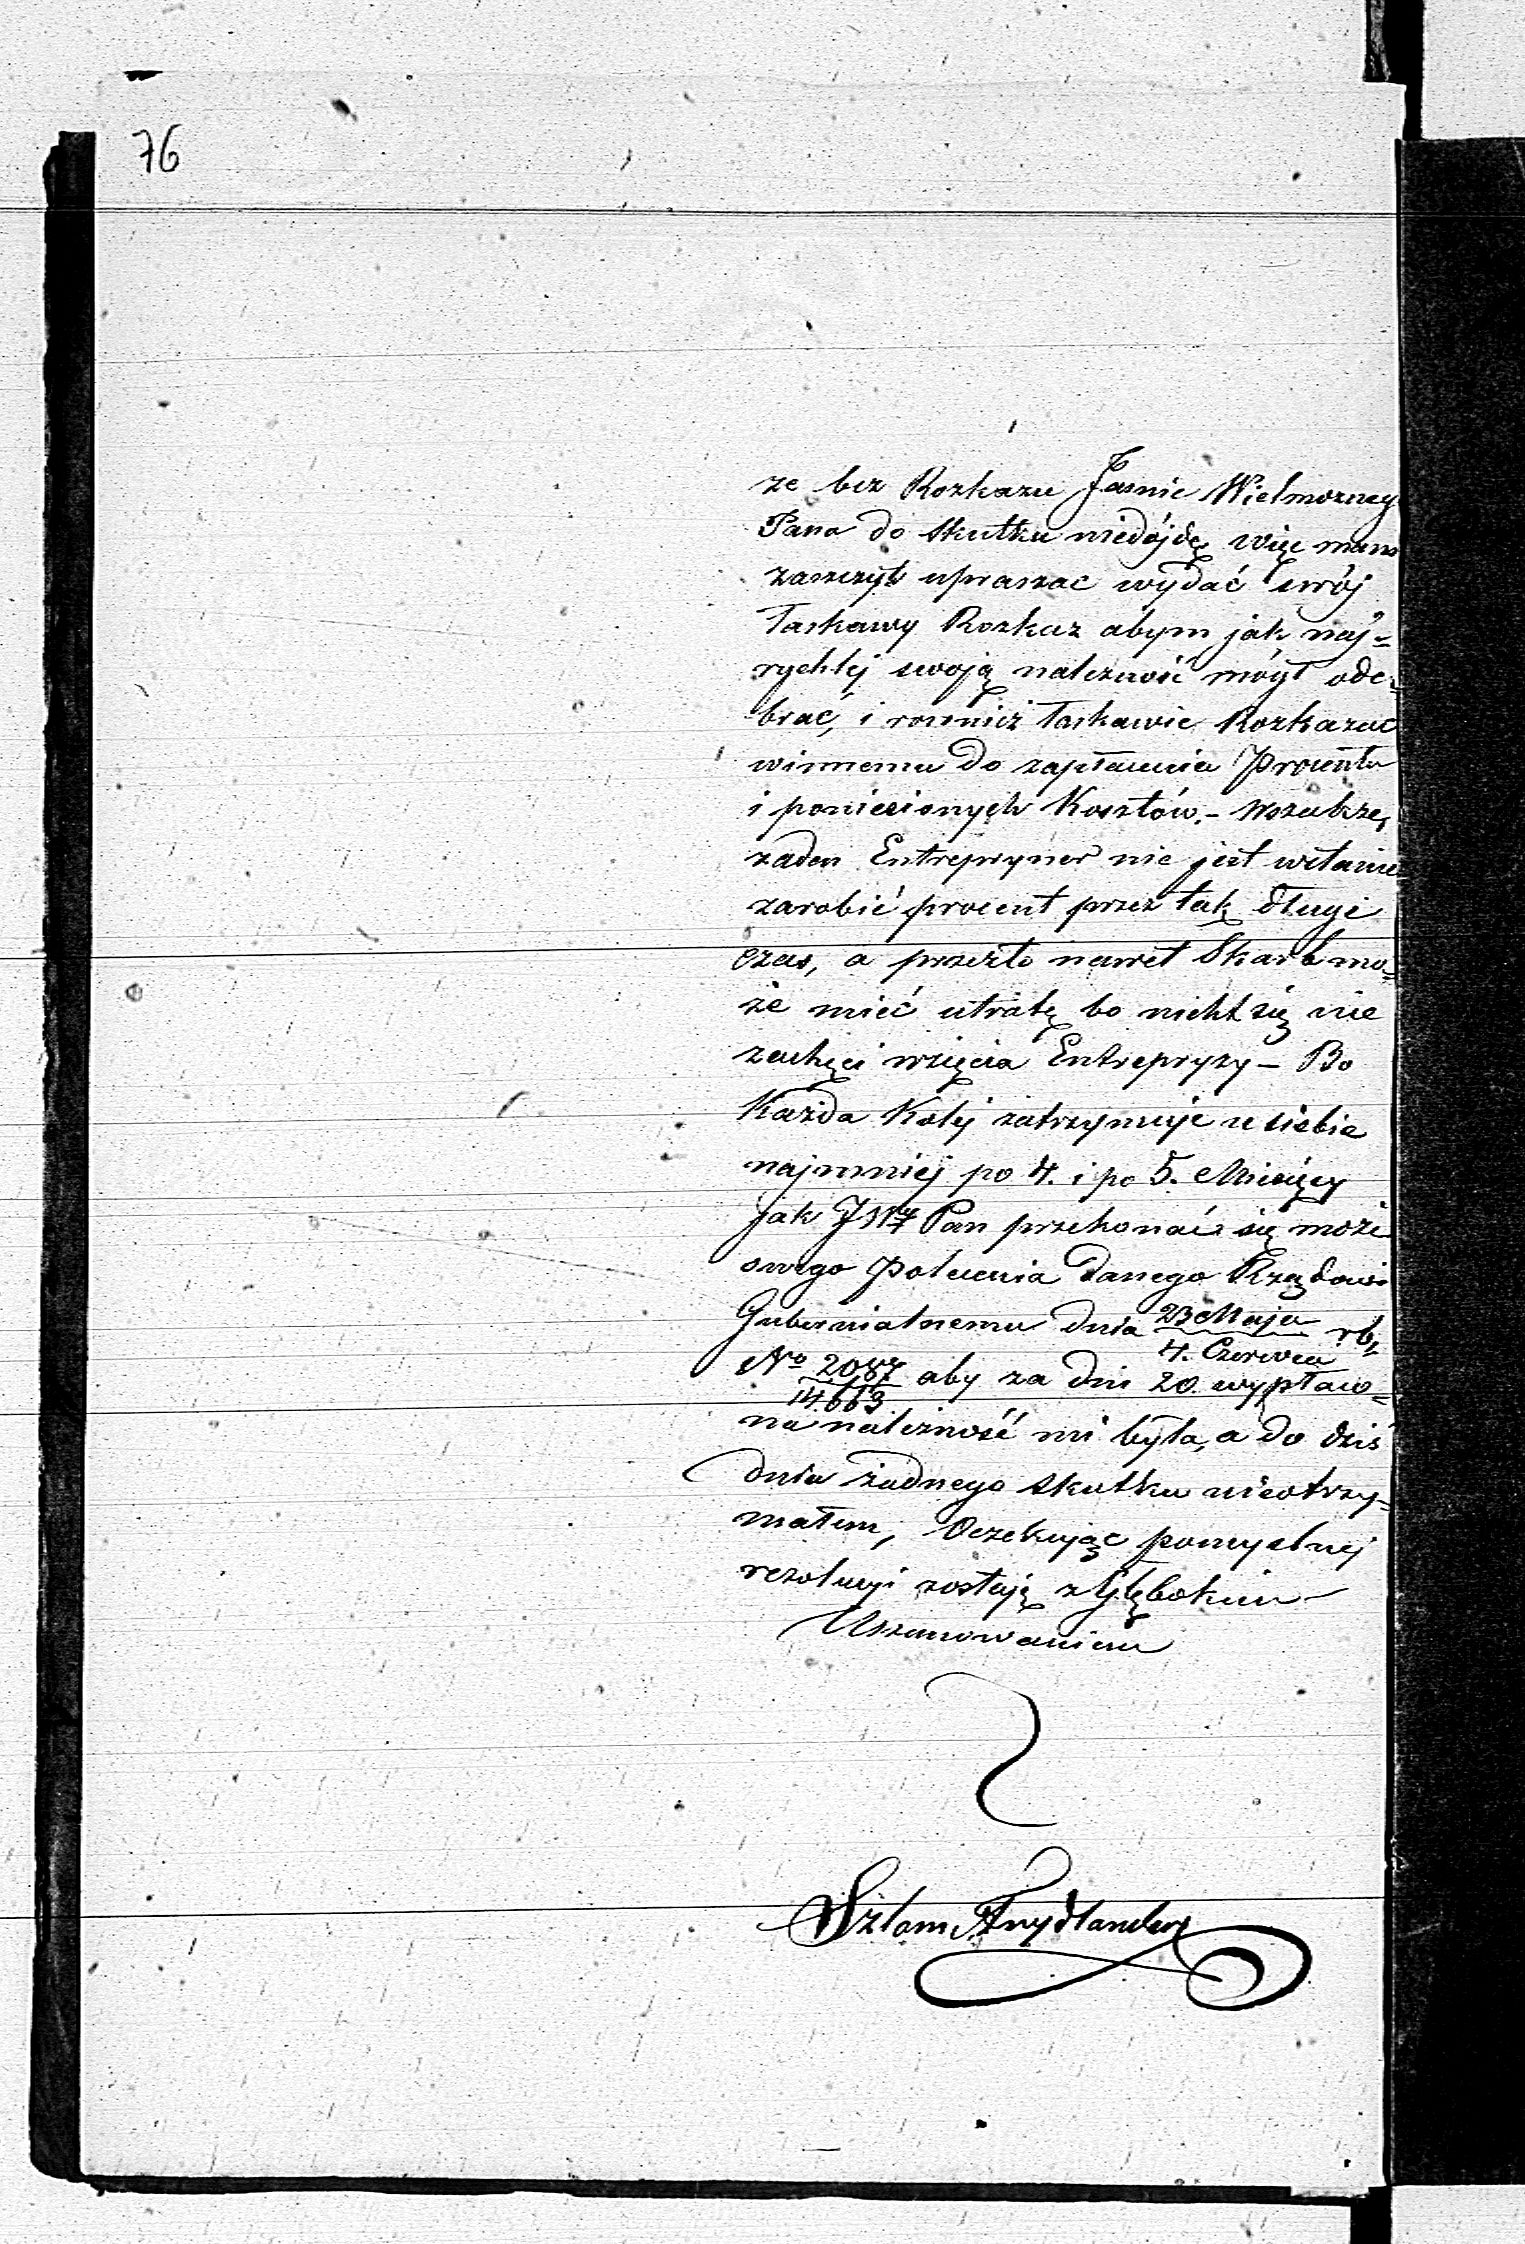 76
ze bez Rozkazu Jasnie Wielmozneg
Pana do skutku niedójdę więc mam
zaszczyt upraszac wydać swój
łaskawy Rozkaz abym jak naj=
rychlej swoją nalezność mógł ode=
brać, i rownież łaskawie Rozkazac
winnemu do zapłacenia Procentu
i poniesionych Kosztów.- Wszakze,
zaden Entrepryner nie jest wstanie
zarobić procent przez tak długi
czas, a przezto nawet Skarb mo=
że mieć utratę bo nicht się nie
zachęci wzięcia Entrepryzy – Bo
Każda Kolej zatrzymuje u siebie
najmniej po 4. i po 5. Miesięcy
jak JW Pan przekonać się może
swego Polecenia danego Rządowi
Gubernialnemu dnia 23 Maja / 4. Czerwca rb,
No 2087 / 14.663 aby za dni 20. wypłaco=
na nalezność mi była, a do dziś
dnia żadnego skutku nieotrzy=
małem, Oczekując pomyslnej
rezolucyi zostaję z Głębokim
Uszanowaniem
Szlam Frydlander